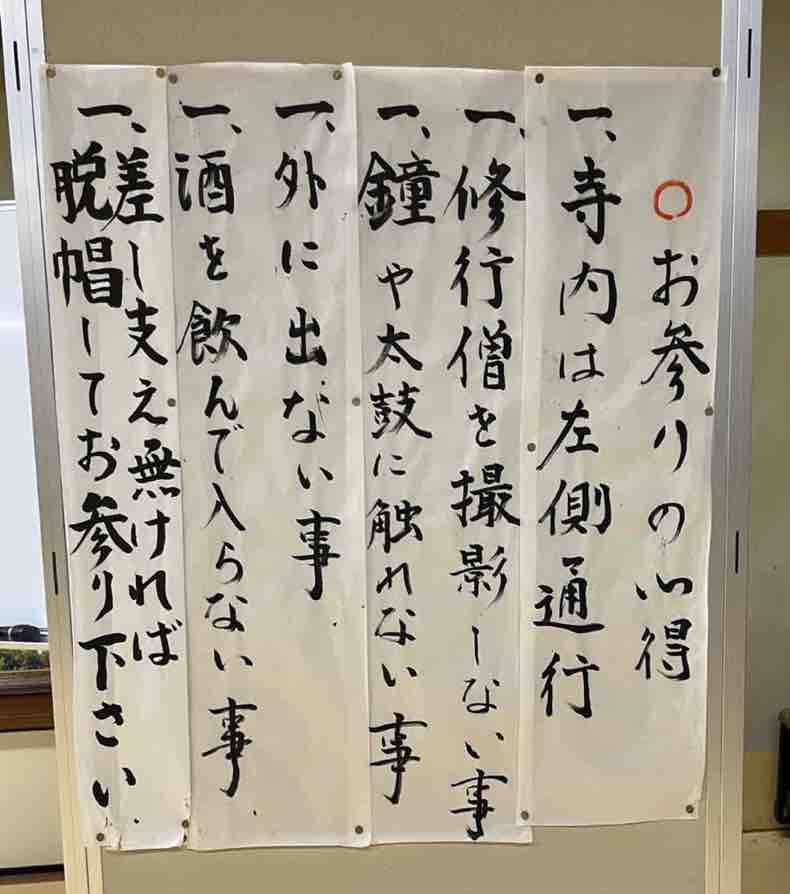 ○お参りの心得
一、寺内は左側通行
一、修行僧を撮影しない事
一、鐘や太鼓に触れない事
一、外に出ない事
一、酒を飲んで入らない事
一、差し支え無ければ
脱帽してお参り下さい